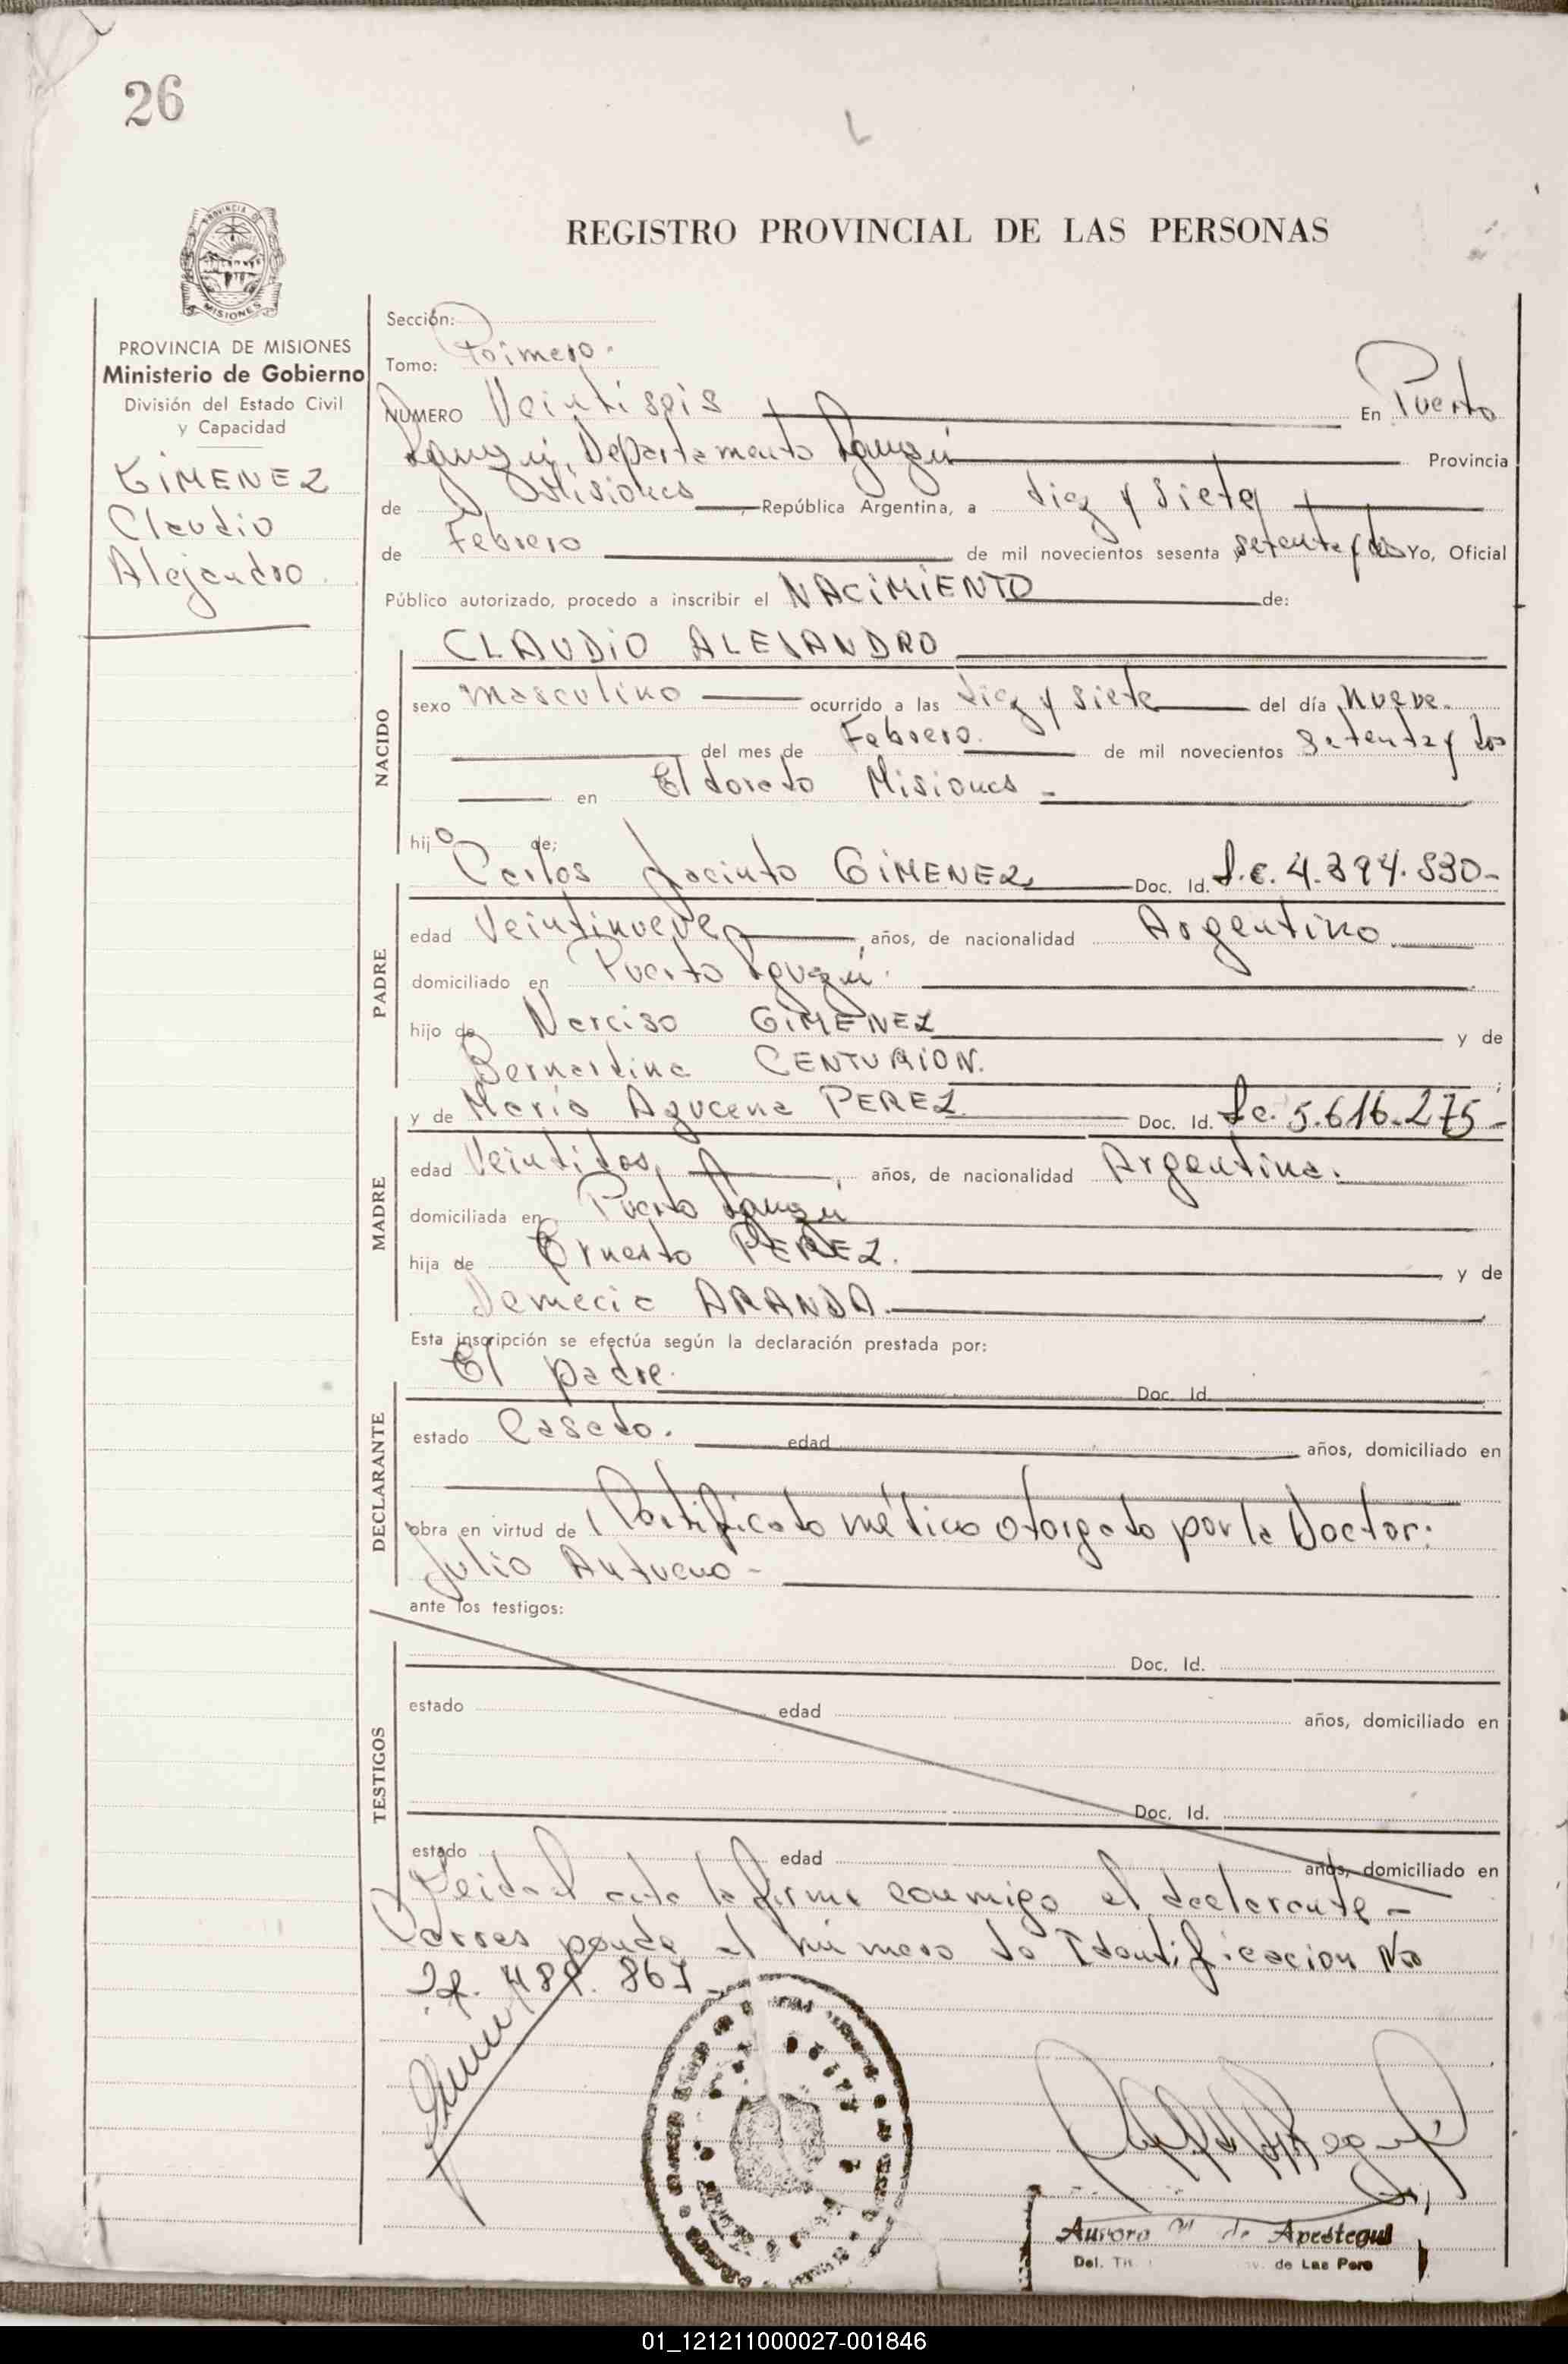 26
PROVINCIA DE
MISIONES
REGISTRO PROVINCIAL DE LAS PERSONAS
PROVINCIA DE MISIONES
Ministerio de Gobierno
División del Estado Civil
y Capacidad
GIMENEZ
Claudio
Alejandro.
Sección:
Tomo: Primero.
NUMERO Veintiseis En Puerto
Iguazú, Departamento Iguazú Provincia
de Misiones, República Argentina, a diez y siete
de Febrero de mil novecientos sesenta setenta y dos Yo, Oficial
Público autorizado, procedo a inscribir el NACIMIENTO de:
NACIDO
CLAUDIO ALEJANDRO
sexo masculino ocurrido a las diez y siete del día nueve.
del mes de Febrero. de mil novecientos setenta y dos
en Eldorado Misiones -
hijo de:
PADRE
Carlos Jacinto GIMENEZ Doc. Id.
edad Veintinueve, años, de nacionalidad Argentino.
domiciliado en Puerto Iguazú.
hijo de Narciso GIMENEZ y de
Bernardina CENTURION. ;
MADRE
y de María Azucena PEREZ. Doc. Id. 5.616.275-
edad Veintidos, años, de nacionalidad Argentina.
domiciliada en Puerto Iguazú
hija de Ernesto PEREZ. y de
ARANDA.
Esta inscripción se efectúa según la declaración prestada por:
DECLARANTE
El padre. Doc. Id.
estado Casado. edad años, domiciliado en
obra en virtud de Certificado médico otorgado por la Doctor:
Julio -
ante los testigos:
TESTIGOS
Doc. Id.
estado edad años, domiciliado en
Doc. Id.
estado edad años, domiciliado en
Leida el acta la firma conmigo el declarante -
Corresponde el número de Identificacion No
Aurora de Apestegui
Del. Tit. de Las Pers
01_121211000027-001846